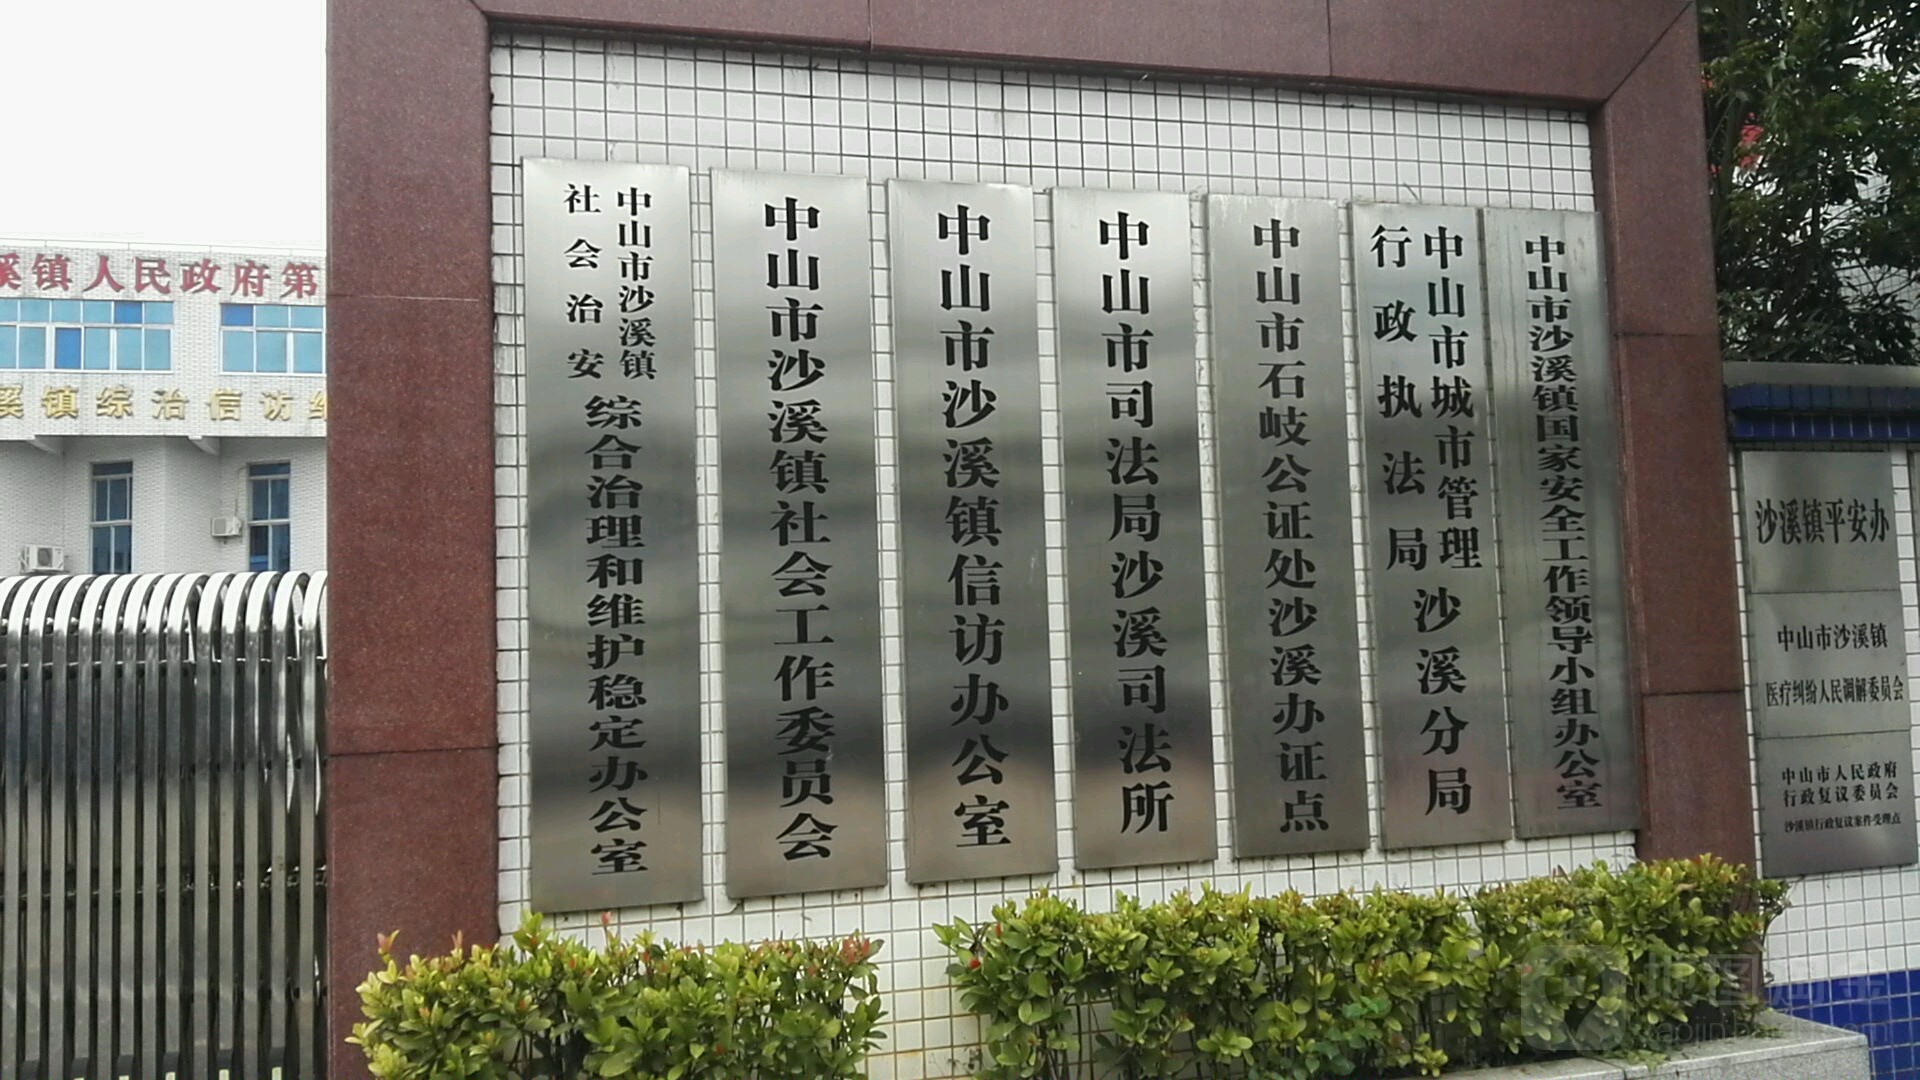 溪镇人民政府第
溪镇综治信访维
中山市沙溪镇
社会治安
综合治理和维护稳定办公室
中山市沙溪镇社会工作委员会
中山市沙溪镇信访办公室
中山市司法局沙溪司法所
中山市石岐公证处沙溪办证点
中山市城市管理
行政执法局
沙溪分局
中山市沙溪镇国家安全工作领导小组办公室
沙溪镇平安办
中山市沙溪镇
医疗纠纷人民调解委员会
中山市人民政府
行政复议委员会
沙溪镇行政复议案件受理点